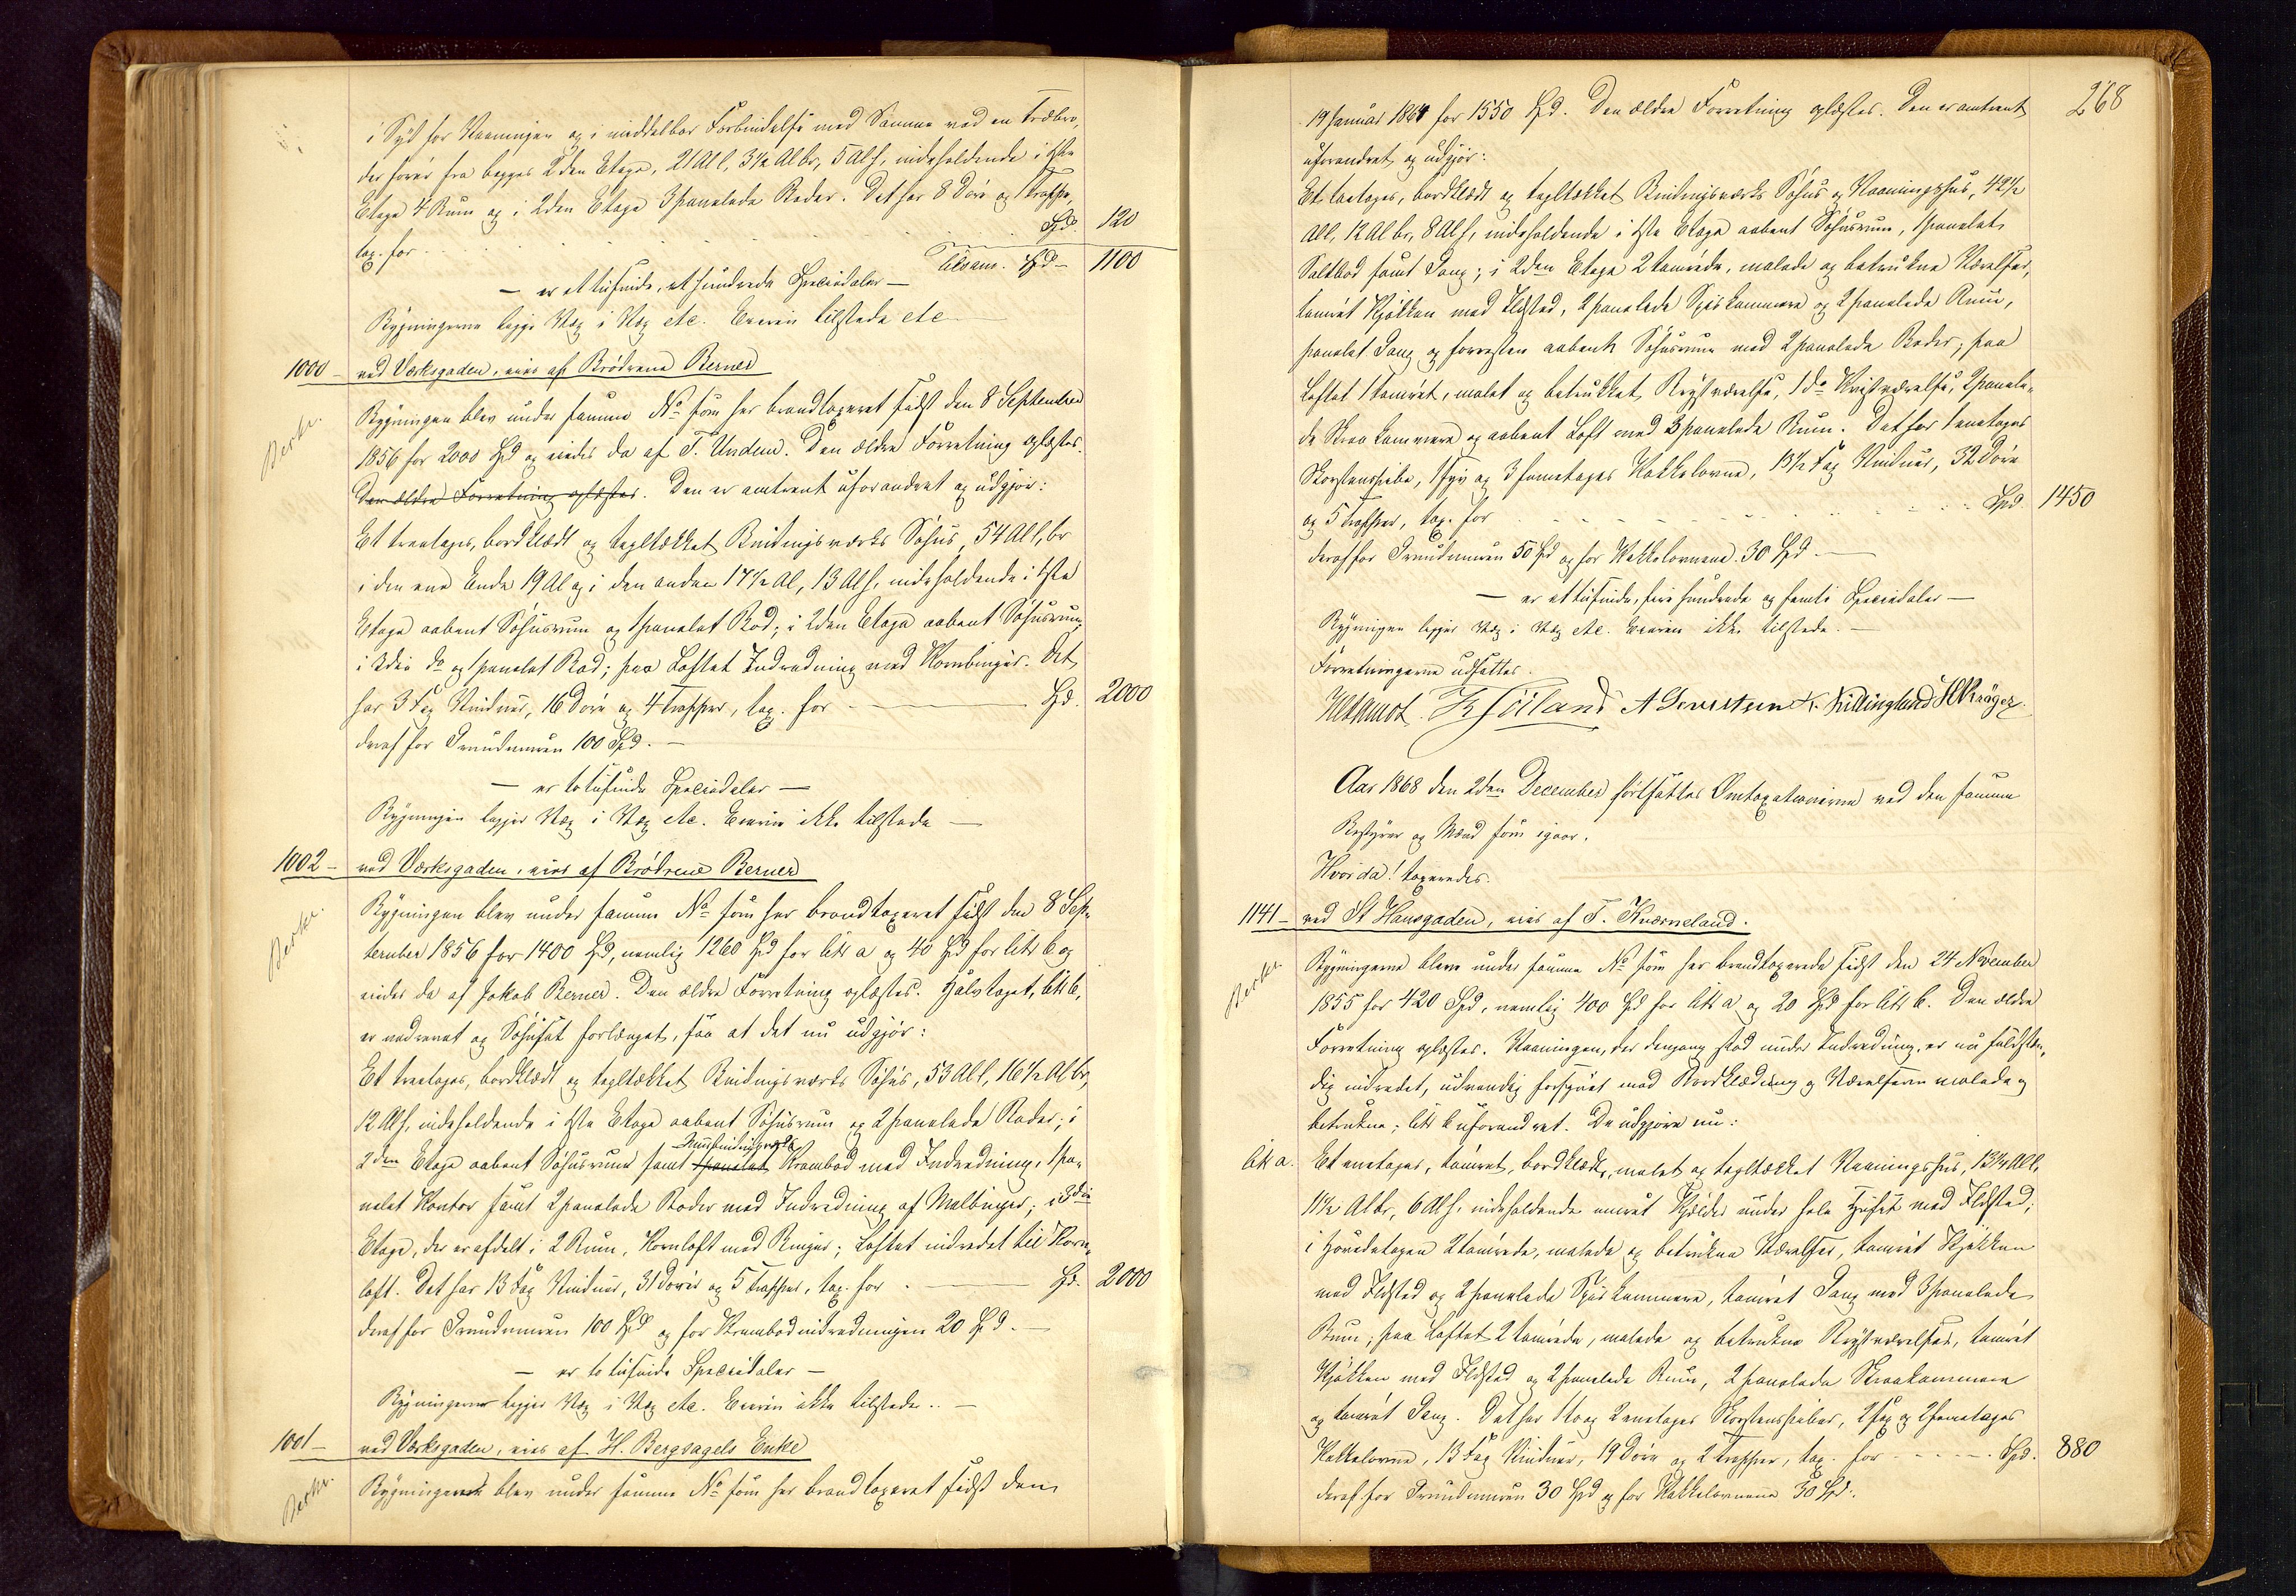 i Syd for Vaaningen og i middelbar Forbindelse med Samme ved en Træbro,
der fører fra begges 2den Etage, 21 Al l, 3½ Al br, 5 Al h, indeholdende i 1ste
Etage 4 Rum og i 2den Etage 3 panelede Boder. Det har 8 Døre og 1 Trappe,
tax. for . . . Spd. 120
Tilsam. Spd – 1100
— er et tusinde, et hundrede Speciedaler —
Bygningerne ligge Væg i Væg etc. Eieren tilstede etc
1000 – ved Værksgaden, eies af Brødrene Berner
Berkr.
Bygningen blev under samme No som her brandtaxeret sidst den 8 September
1856 for 2000 Spd og eiedes da af T. Undem. Den ældre Forretning oplæstes.
Den ældre Forretning oplæstes. Den er omtrent uforandret og udgjør:
Et treetages, bordklædt og tegltækket Bindingsværks Søhus, 54 Al l, br
i den ene Ende 19 Al og i den anden 17½ Al, 13 Al h, indeholdende i 1ste
Etage aabent Søhusrum og 1 panelet Bod; i 2den Etage aabent Søhusrum,
i 3die do og 1 panelet Bod; paa Loftet Indredning med Kornbinger. Det
har 3 Fag Vinduer, 16 Døre og 4 Trapper, tax. for — Spd. 2000
deraf for Grundmuren 100 Spd. —
— er to tusinde Speciedaler —
Bygningen ligger Væg i Væg etc. Eieren ikke tilstede —
1002 – ved Værksgaden, eies af Brødrene Berner
Berkr.
Bygningen blev under samme No som her brandtaxeret sidst den 8 Sep-
tember 1856 for 1400 Spd, nemlig 1260 Spd for litr a og 40 Spd for litr b og
eiedes da af Jakob Berner. Den ældre Forretning oplæstes. Halvtaget, litr b,
er nedrevet og Søhuset forlænget, saa at det nu udgjør:
Et treetages, bordklædt og tegltækket Bindingsværks Søhus, 53 Al l, 16½ Al br,
12 Al h, indeholdende i 1ste Etage aabent Søhusrum og 2 panelede Boder; i
2den Etage aabent Søhusrum samt 1 panelet Krambod med Indredning, 1 pa-
nelet Kontor samt 2 panelede Boder med Indredning af Maltbinger; i 3die
Etage, der er afdelt i 2 Rum, Kornloft med Binger; Loftet indredet til Korn-
loft. Det har 13 Fag Vinduer, 31 Dører og 5 Trapper, tax. for . — Spd. 2000
deraf for Grundmuren 100 Spd og for Krambodindredningen 20 Spd. —
— er to tusinde Speciedaler —
Bygningerne ligger Væg i Væg etc. Eieren ikke tilstede.. —
1001 – ved Værksgaden, eies af H. Bergsagels Enke
Berkr.
Bygningen blev under samme No som her brandtaxeret sidst den
268
19 Januar 1864 for 1550 Spd. Den ældre Forretning oplæstes. Den er omtrent
uforandret og udgjør:
Et toetages, bordklædt og tegltækket Bindingsværks Søhus og Vaaningshus, 42½
Al l, 12 Al br, 8 Al h, indeholdende i 1ste Etage aabent Søhusrum, 1 panelet
Saltbod samt Gang; i 2den Etage 2 tømrede, malede og betrukne Værelser,
tømret Kjøkken med Ildsted, 2 panelede Spiskammere og 2 panelede Rum,
panelet Gang og forresten aabent Søhusrum med 2 panelede Boder; paa
Loftet 1 tømret, malet og betrukket Kvistværelse, 1 do Kvistværelse, 2 panele-
de Skraakammere og aabent Loft med 3 panelede Rum. Det har 1 enetages
Skorstenspibe, 1 fyr og 3 femetages Kakkelovne, 13½ Fag Vinduer, 32 Døre
og 5 Trapper, tax. for . . . Spd. 1450
deraf for Grundmuren 50 Spd og for Kakkelovnene 30 Spd. —
— er et tusinde, fire hundrede og femti Speciedaler —
Bygningen ligger Væg i Væg etc. Eieren ikke tilstede. —
Forretningerne udsattes.
K. Killingland H Krøger.
Aar 1868 den 2den December fortsattes Omtaxationerne ved den samme
Bestyrer og Mænd som igaar.
Hvor da! taxeredes.
1141 – ved St Hansgaden, eies af T. Kværneland.
Berkr.
Bygningerne bleve under samme No som her brandtaxerede sidst den 24 November
1855 for 420 Spd, nemlig 400 Spd for litr a og 20 Spd for litr b. Den ældre
Forretning oplæstes. Vaaningen, der dengang stod under Indredning, er nu fuldstæn-
dig indredet, udvendig forsynet med Bordklædning og Værelserne malede og
betrukne; litr b uforandret. De udgjøre nu:
litr a. Et enetages, tømret, bordklædt, malet og tegltækket Vaaningshus, 13¼ Al l,
11½ Al br, 6 Al h, indeholdende muret Kjælder under hele Huset med Ildsted;
i Hovedetagen 2 tømrede, malede og betrukne Værelser, tømret Kjøkken
med Ildsted og 2 panelede Spiskammere, tømret Gang med 3 panelede
Rum; paa Loftet 2 tømrede, malede og betrukne Kvistværelser, tømret
Kjøkken med Ildsted og 2 panelede Rum, 2 panelede Skraakammere
og tømret Gang. Det har 1 to og 2 enetages Skorstenspiber, 2 fyr og 2 femetages
Kakkelovne, 13 Fag Vinduer, 19 Døre og 2 Trapper, tax. for - - - - - Spd. 880
deraf for Grundmuren 30 Spd og for Kakkelovnene 30 Spd.